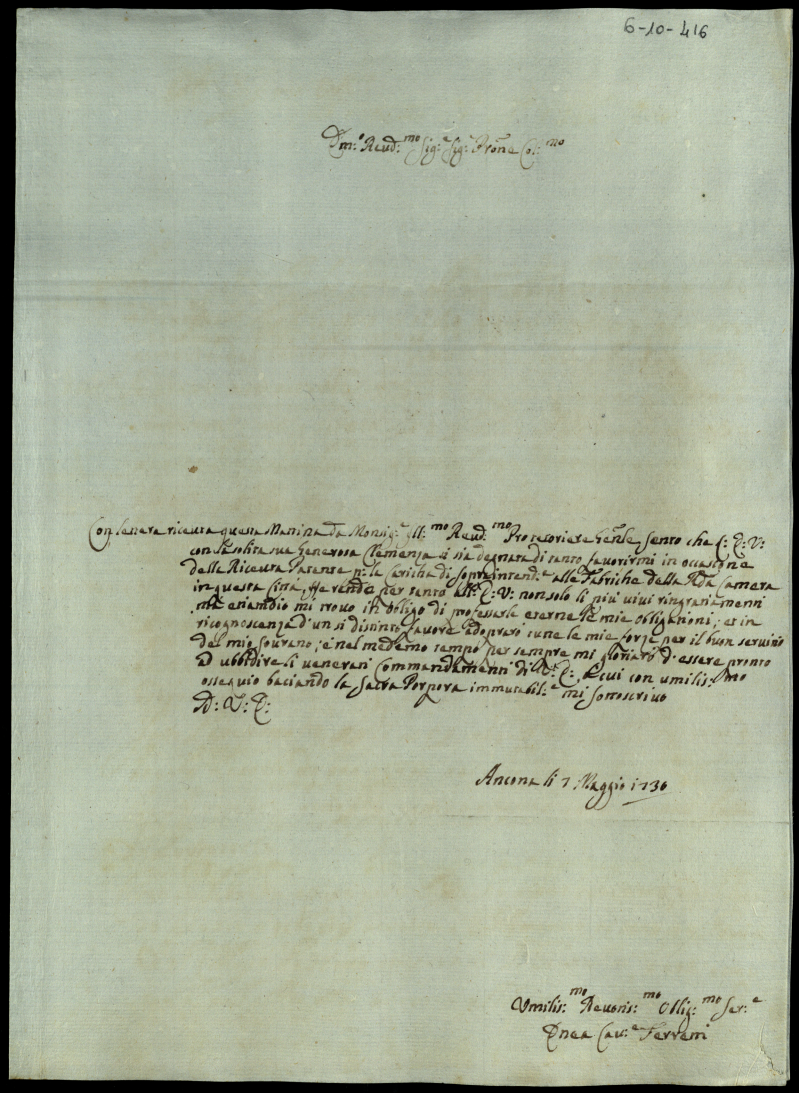 6-10-416
Em:º Reud:mo Sig:e Sig:e Prone Col:mo
Con lettera riceuta questa Mattina da Monsig:e Ill:mo Reud:mo Protesoriere Gen̄le sento che l: E: V:
con la solita sua Generosa Clemenza si sia degnata di tanto favorirmi in occasione
della Riceuta Patente p: la Caricha di Sopraintend:te alle Fabriche della Rda Camera
in questa Città, Herendo per tanto all: E: V: non solo li più vivi ringratiamenti
ma etiandio mi trovo in obligo di professarle eterne le mie obligationi; et in
ricognoscenza d'un si distinto favore adoprarò tutte le mie forze per il buon servitio
del mio Sourano, e nel medemo tempo per sempre mi gloriarò d'essere pronto
ad ubbidire li venerati Commandamenti di V: E:, a cui con umilis:mo
ossequio baciando la Sacra Porpora immutabil:e mi sottoscrivo
D: V: E:
Ancona li 7 Maggio 1730
Umilis:mo Deuotis:mo Oblig:mo Ser:e
Enea Cav:e Ferretti